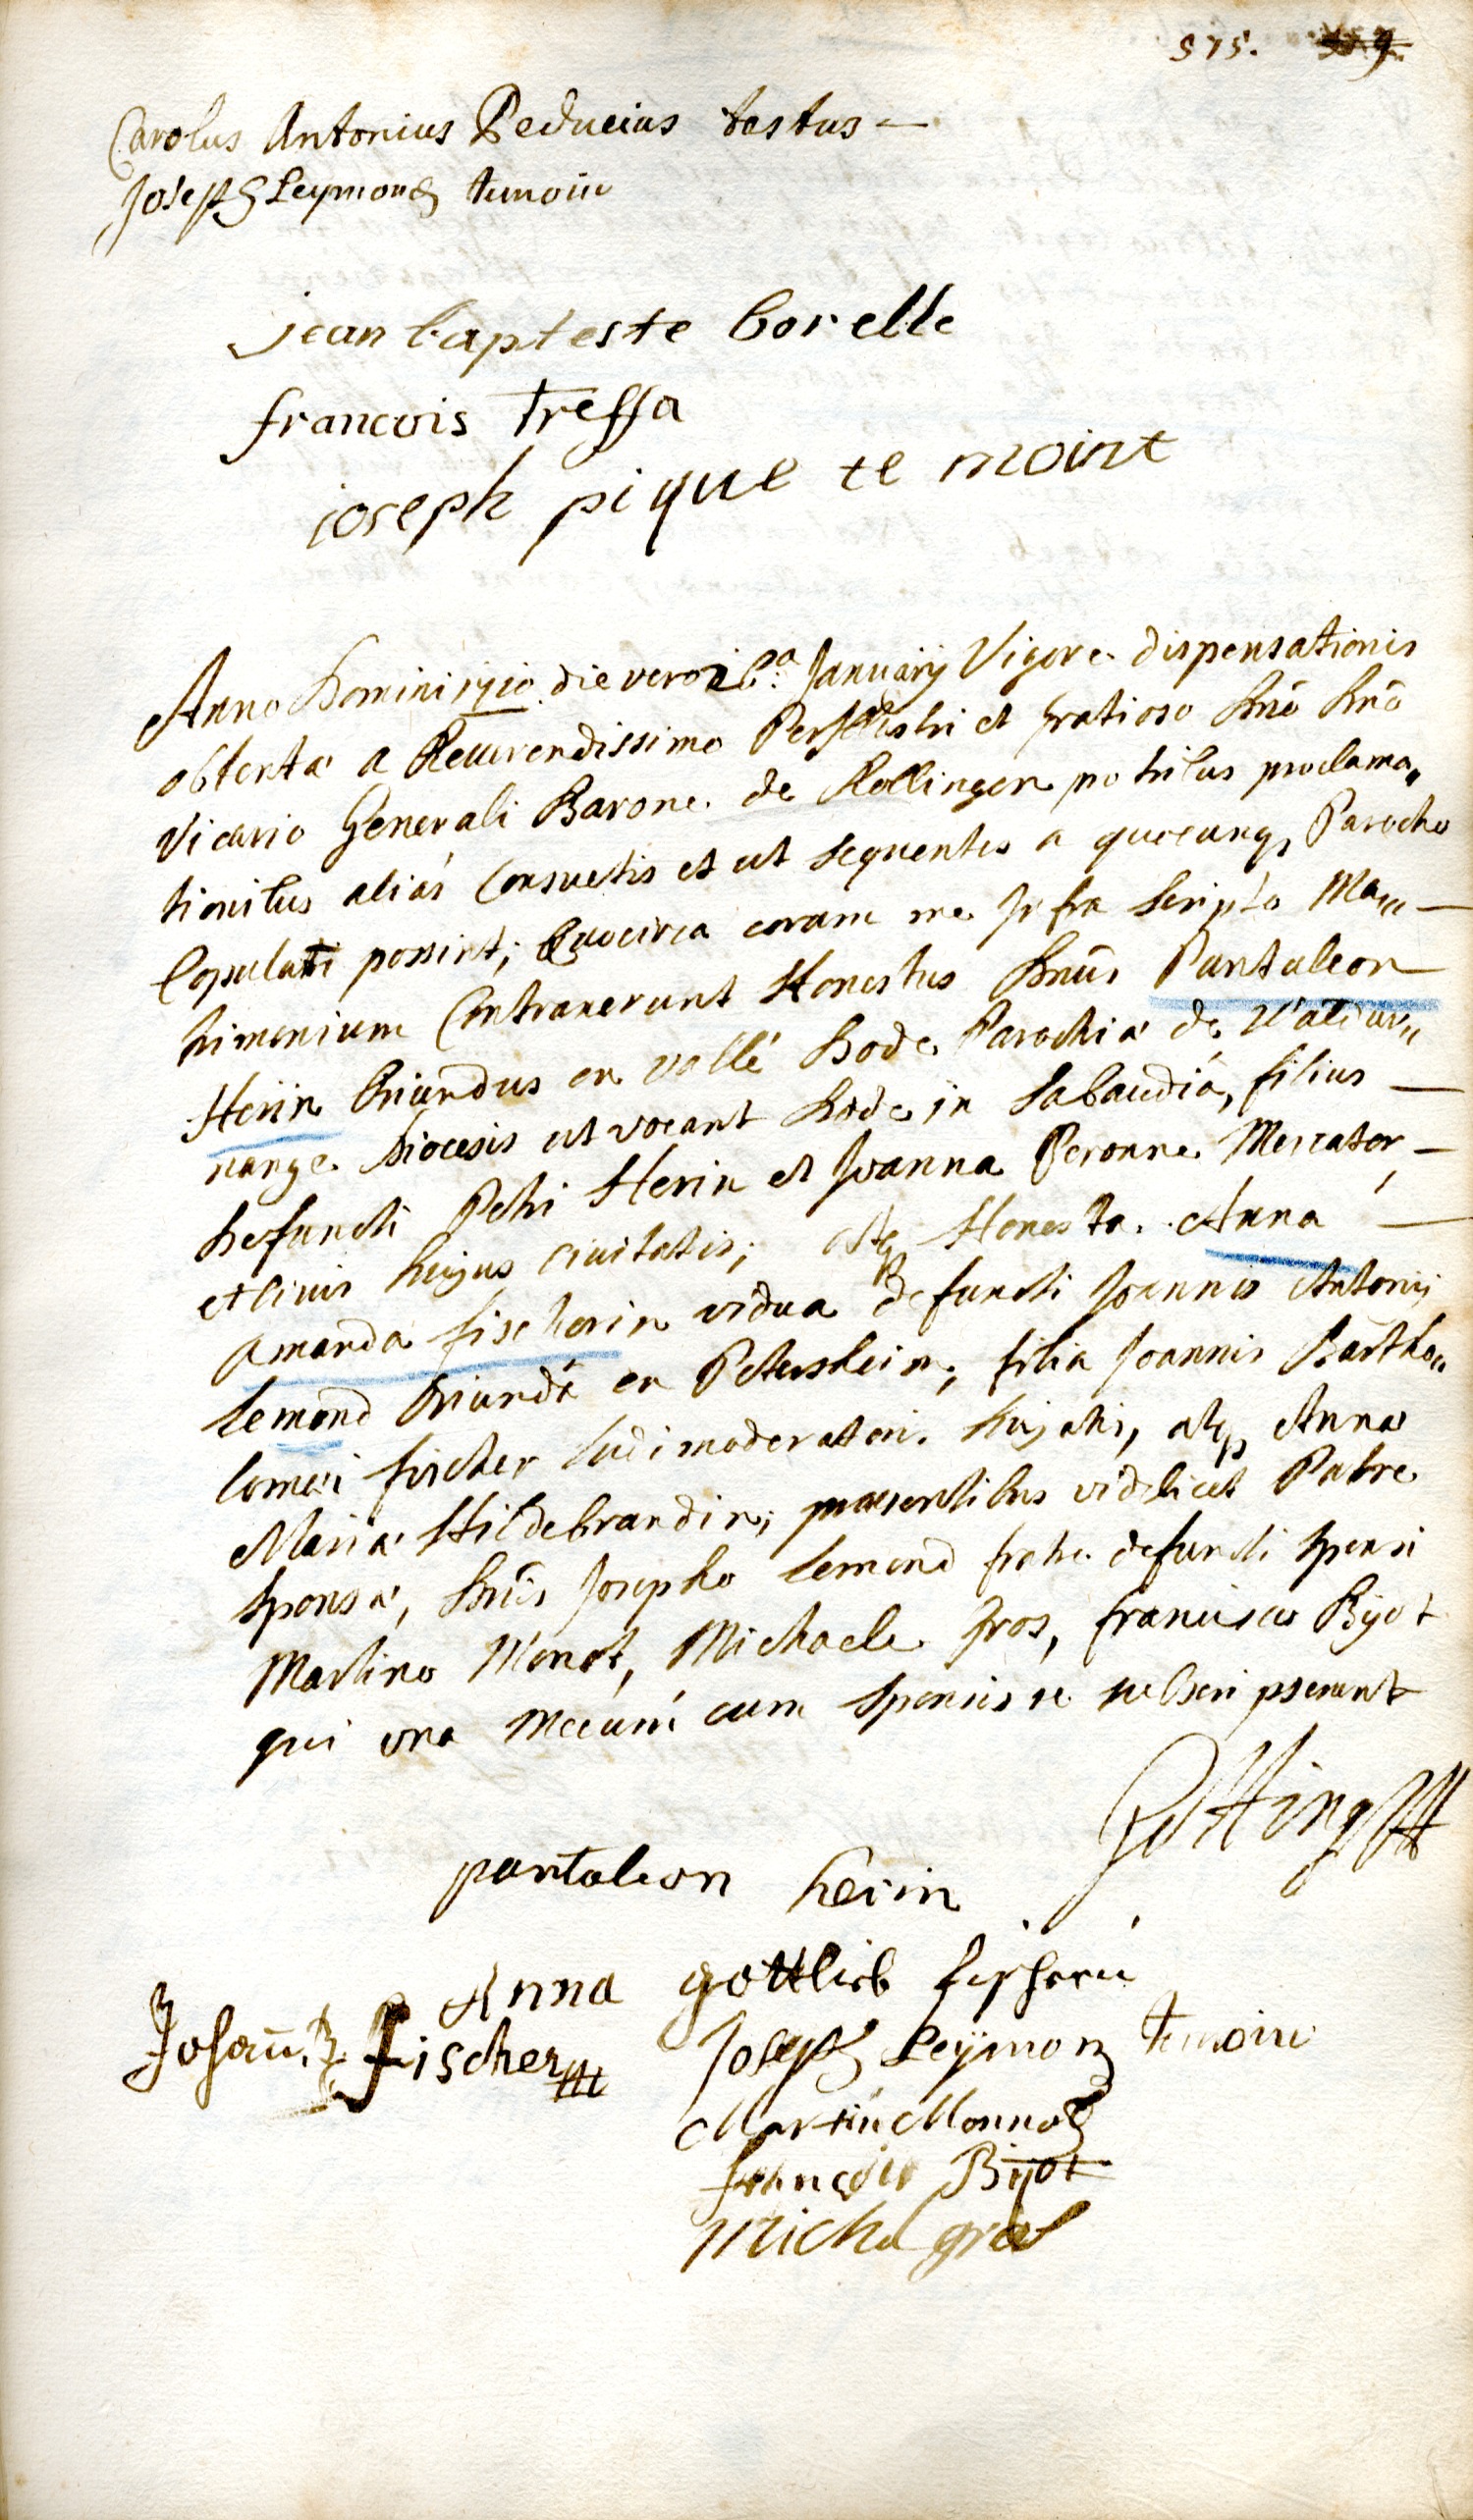 575.
Carolus Antonius Peducius testus
Joseph Leymond temoiu
jean bapteste borelle
francois treffa
joseph pique te moint
Anno Domini 1710 die vero January Vigore dispensationis
obtentæ a Reverendissimo Perillustri et gratioso Dnō Dnō
Vicario Generali Barone de Rollingen po tribus proclama„
tionibus aliás Consuetis et ut sequentes a quocunq, Parocho
Copulati possint; Quocirca coram me Infra Scripto Ma„
trimonium Contraxerunt Honestus Dnūs Pantaleon
Herin Oriundus ex vallé Dode Parochiæ de
nange Diocesis ut vocant Dode in Sabaudiá, filius
Defuncti Petri Herin et Joanna Peronne Mercator
et civis hujus civitatis; Atq Honesta Anna
Amanda fischerin vidua defuncti Joannis Antonij
Lemond Oriundá ex Petersheim, filia Joannis Bartho„
lomæi fischer ludimoderatori hujatis, atq Annæ
Mariæ Hildebrandin; præsentibus videlicet Patre
Sponsæ, Dnīs Josepho Lemond fratre defuncti Sponsi
Martino Monot, Michaele Gros, francisco Bijot
qui una mecum cum Sponsis se subscripserunt
pantaleon herin
Anna gottlieb fischerin
Johañ. B. Fischer
Joseph Leymond temoin
Martin Monnot
françois Bijot
Michel gros